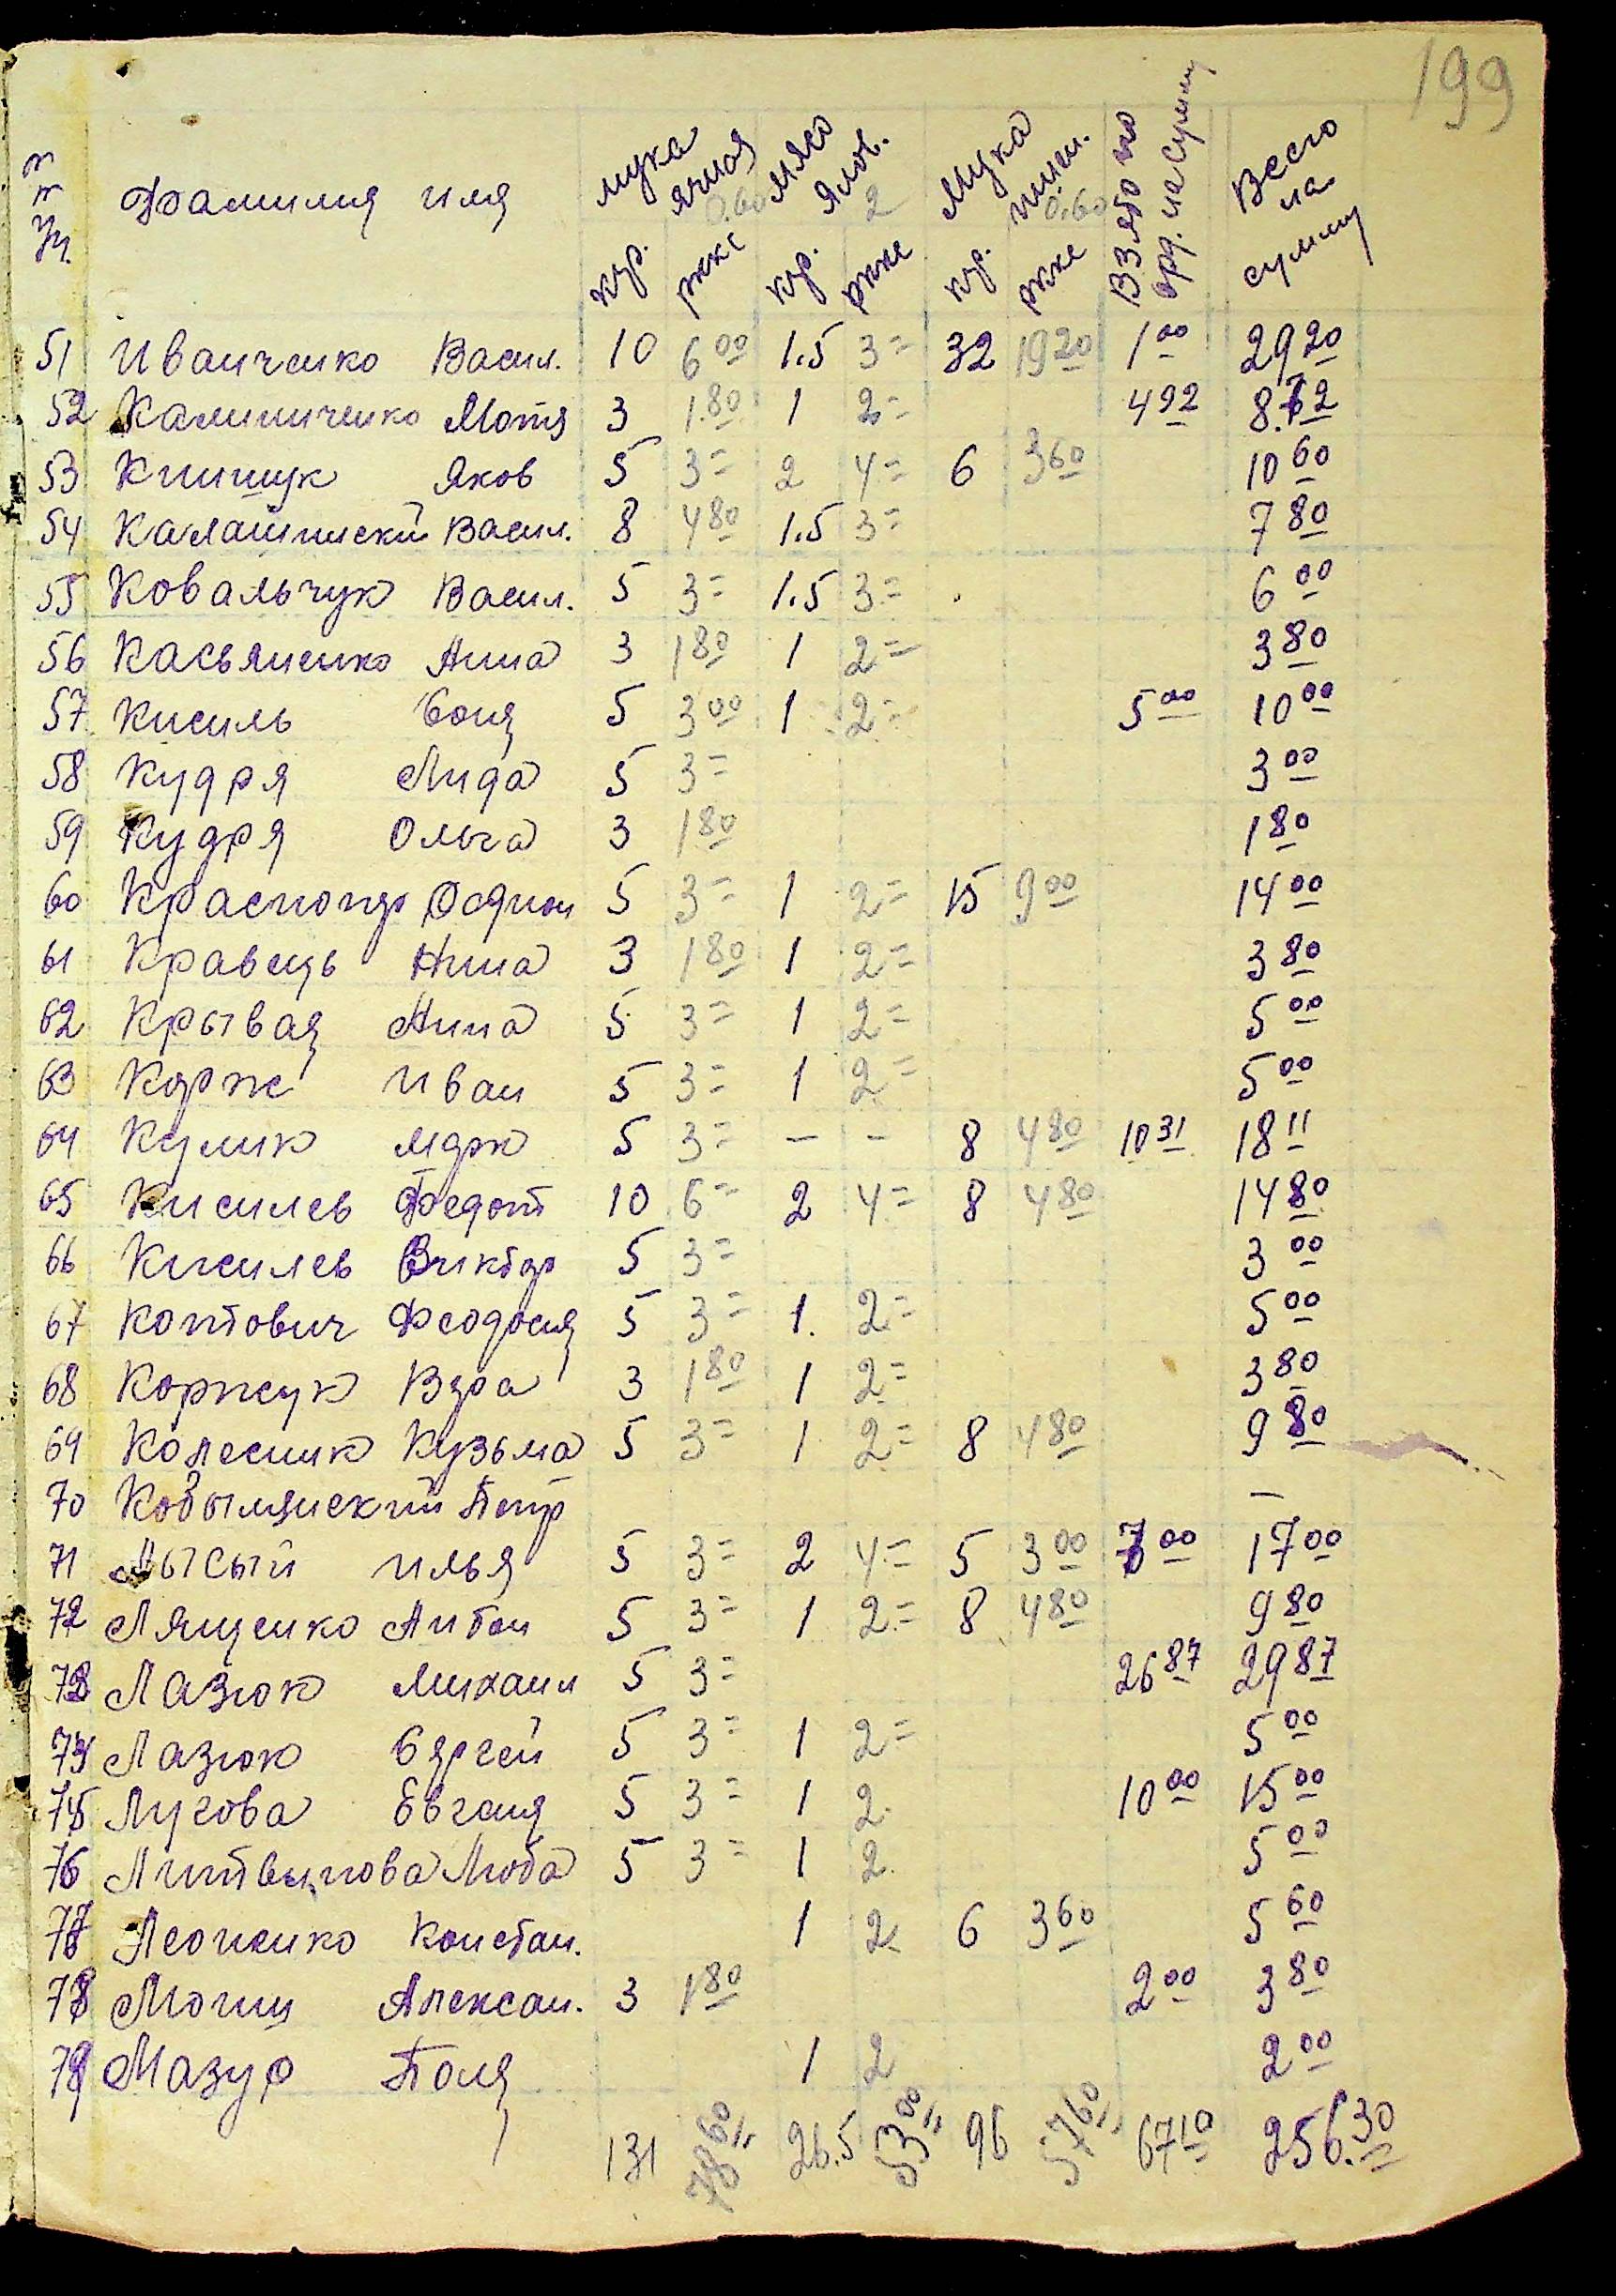 199
№ п/п
Фамилия имя
мука ячная 0.60
мясо ялов. 2
мука пшен. 0.60
Взято по орд. на сумму
Всего на сумму
кгр. ркке кгр. ркке кгр. ркке
51 Иванченко Васил. 10 6 00 1.5 3= 32 19 20 1 00 29 20
52 Калиниченко Мотя 3 1.80 1 2= 4 92 8.72
53 Книшук Яков 5 3= 2 4= 6 3 60 10 60
54 Калашинский Васил. 8 4 80 1.5 3= 7 80
55 Ковальчук Васил. 5 3= 1.5 3= 6 00
56 Касьяненко Анна 3 1 80 1 2= 3 80
57 Кисиль Соня 5 3 00 1 2= 5 00 10 00
58 Кудря Лида 5 3= 3 00
59 Кудря Ольга 3 1 80 1 80
60 Краснопер 5 3= 1 2= 15 9 00 14 00
61 Кравець Нина 3 1 80 1 2= 3 80
62 Крывая Анна 5 3= 1 2= 5 00
63 Корж Иван 5 3= 1 2= 5 00
64 Кулик Марк 5 3= – – 8 4 80 10 31 18 11
65 Кисилев Федот 10 6= 2 4= 8 4 80 14 80
66 Кисилев Виктор 5 3= 3 00
67 Контович Феодосия 5 3= 1. 2= 5 00
68 Коржук Вера 3 1 80 1 2= 3 80
69 Колесник Кузьма 5 3= 1 2= 8 4 80 9 80
70 Кобылянский Петр –
71 Лысый Илья 5 3= 2 4= 5 3 00 7 00 17 00
72 Лященко Антон 5 3= 1 2= 8 4 80 9 80
73 Лазюк Михаил 5 3= 26 87 29 87
74 Лазюк Сергей 5 3= 1 2= 5 00
75 Лугова Евгения 5 3= 1 2. 10 00 15 00
76 Литвинова Люба 5 3= 1 2. 5 00
77 Леоненко Констан. 1 2. 6 3 60 5 60
78 Могиш Алексан. 3 1 80 2 00 3 80
79 Мазур Поля 1 2 2 00
131 78 60 26.5 53 00 96 57 60 67 10 256.30